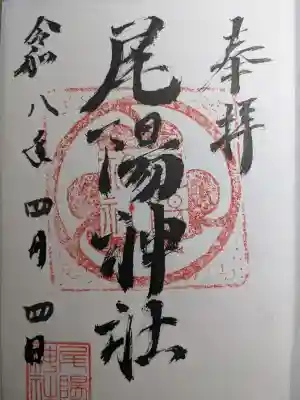 奉拝
尾陽神社
令和八年四月四日
尾陽神社